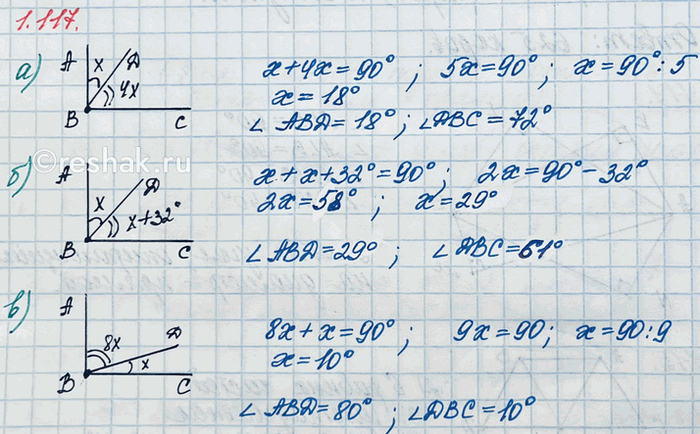 1.117.
а) A x D 4x B C
x+4x=90° ; 5x=90° ; x=90°:5
x=18°
∠ABD=18° ; ∠DBC=72°
©reshak.ru
б) A x D x+32° B C
x+x+32°=90° ; 2x=90°-32°
2x=58° ; x=29°
∠ABD=29° ; ∠DBC=61°
в) A 8x D x B C
8x+x=90° ; 9x=90; x=90:9
x=10°
∠ABD=80° ; ∠DBC=10°